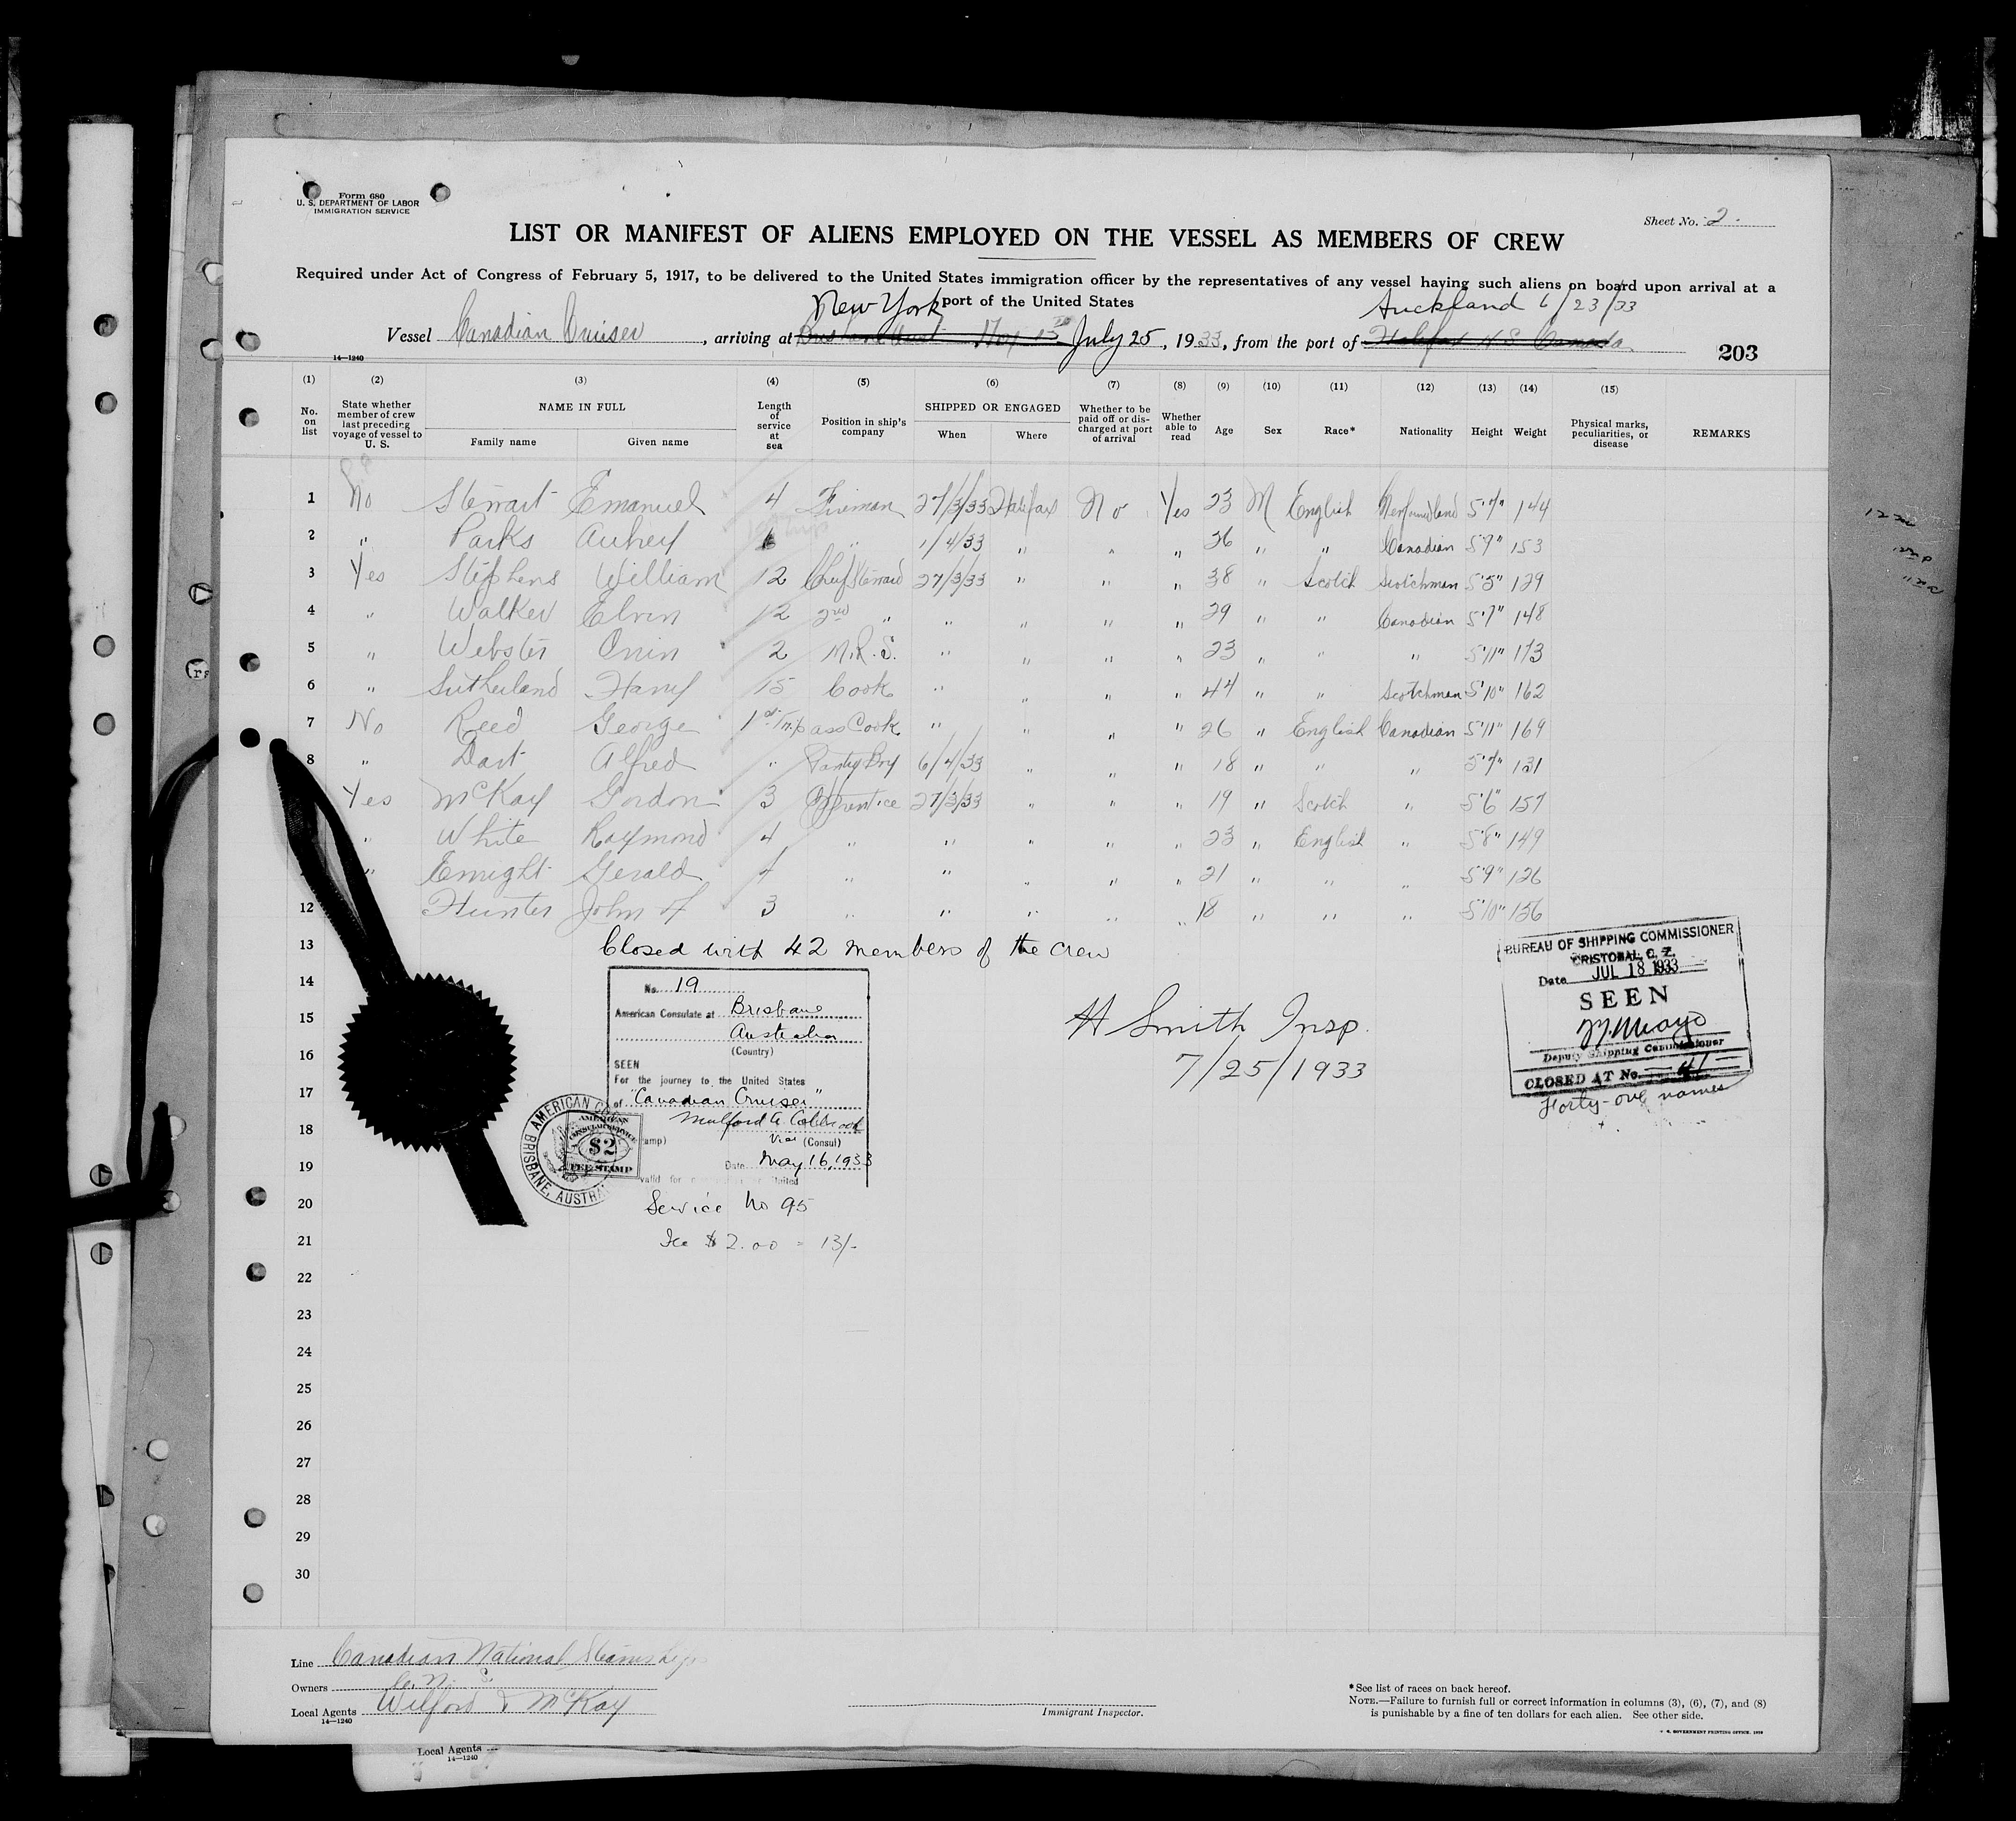 Form 680
U. S. DEPARTMENT OF LABOR
IMMIGRATION SERVICE
Sheet No. 2.
LIST OR MANIFEST OF ALIENS EMPLOYED ON THE VESSEL AS MEMBERS OF CREW
Required under Act of Congress of February 5, 1917, to be delivered to the United States immigration officer by the representatives of any vessel having such aliens on board upon arrival at a
port of the United States
New York Auckland 6/23/33
Vessel Canadian Cruiser, arriving at July 25, 1933, from the port of Halifax N S Canada
14—1240
203
(1) (2) (3) (4) (5) (6) (7) (8) (9) (10) (11) (12) (13) (14) (15)
No. on list State whether member of crew last preceding voyage of vessel to U. S. NAME IN FULL Family name Given name Length of service at sea Position in ship's company SHIPPED OR ENGAGED When Where Whether to be paid off or discharged at port of arrival Whether able to read Age Sex Race* Nationality Height Weight Physical marks, peculiarities, or disease REMARKS
1 No Stewart Emanuel 4 Fireman 27/3/33 Halifax No Yes 23 M English Newfoundland 5'7" 144
2 " Parks Aubrey " 1/4/33 " " " 26 " " Canadian 5'7" 153
3 Yes Stephens William 12 Chief Steward 27/3/33 " " " 38 " Scotch Scotchman 5'5" 129
4 " Walker Elvin 12 2nd " " " " " 29 " " Canadian 5'7" 148
5 " Webster Orrin 2 M.R.S. " " " " 23 " " " 5'11" 173
6 " Sutherland Harry 15 Cook " " " " 44 " " Scotchman 5'10" 162
7 No Reed George 1st Trip ass Cook " " " " 26 " English Canadian 5'11" 169
8 " Dart Alfred " Pantry Boy 6/4/33 " " " 18 " " " 5'7" 131
Yes McKay Gordon 3 Apprentice 27/3/33 " " " 19 " Scotch " 5'6" 157
" White Raymond 4 " " " " " 23 " English " 5'8" 149
" Enright Gerald 4 " " " " " 21 " " " 5'9" 126
12 Hunter John 3 " " " " " 18 " " " 5'10" 156
13 Closed with 42 members of the crew
14
15
16
17
18
19
20
21
22
23
24
25
26
27
28
29
30
No. 19
American Consulate at Brisbane
Australia
(Country)
SEEN
For the journey to the United States
of "Canadian Cruiser"
Vice (Consul)
Date May 16, 1933
AMERICAN
BRISBANE, AUSTRA
AMERICAN
CONSULAR SERVICE
$2
FEE STAMP
Service No 95
Fee $2.00 = 13/-
H Smith Insp.
7/25/1933
BUREAU OF SHIPPING COMMISSIONER
CRISTOBAL, C. Z.
Date JUL 18 1933
SEEN
Deputy Shipping Commissioner
CLOSED AT No. 41
Forty-one names
Line Canadian National Steamships
Owners C. N. S.
Local Agents Wilford & McKay
14—1240
Immigrant Inspector.
*See list of races on back hereof.
NOTE.—Failure to furnish full or correct information in columns (3), (6), (7), and (8)
is punishable by a fine of ten dollars for each alien. See other side.
Local Agents
14—1240